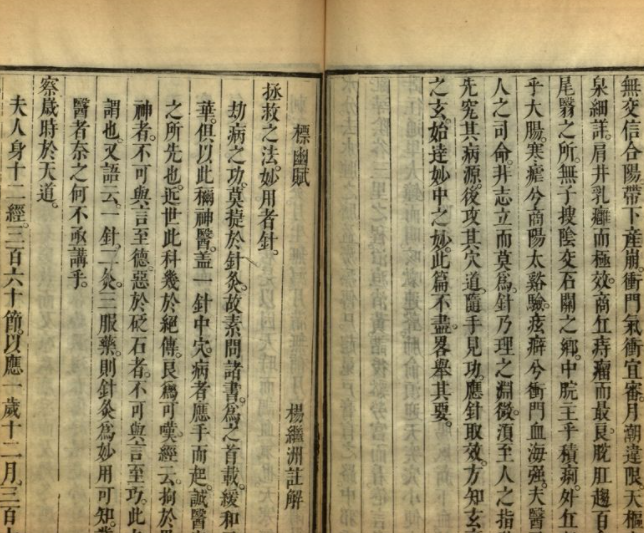 無交信合陽帶下產崩衝門氣衝宜審月潮違限天樞
泉細詳肩井乳癰而極效商丘痔瘤而最良脫肛趨百
尾翳之所無子搜陰交石關之鄉中脘主乎積痢外丘
乎大腸寒瘧兮商陽太谿驗痃癖兮衝門血海强夫醫
人之司命非志立而莫為針乃理之淵微須至人之指
先究其病源後攻其穴道隨手見功應針取效方知玄
之玄始達妙中之妙此篇不盡畧舉其要
標幽賦
楊繼洲註解
拯救之法妙用者針
劫病之功莫捷於針灸故素問諸書為之首載緩和
華但以此稱神醫蓋一針中穴病者應手而起誠醫
之所先也近世此科幾於絕傳良為可嘆經云拘於
神者不可與言至德惡於砭石者不可與言至巧此
謂也又語云一針二灸三服藥則針灸為妙用可知
醫者奈之何不亟講乎
察歲時於天道
夫人身十二經三百六十節以應一歲十二月三百